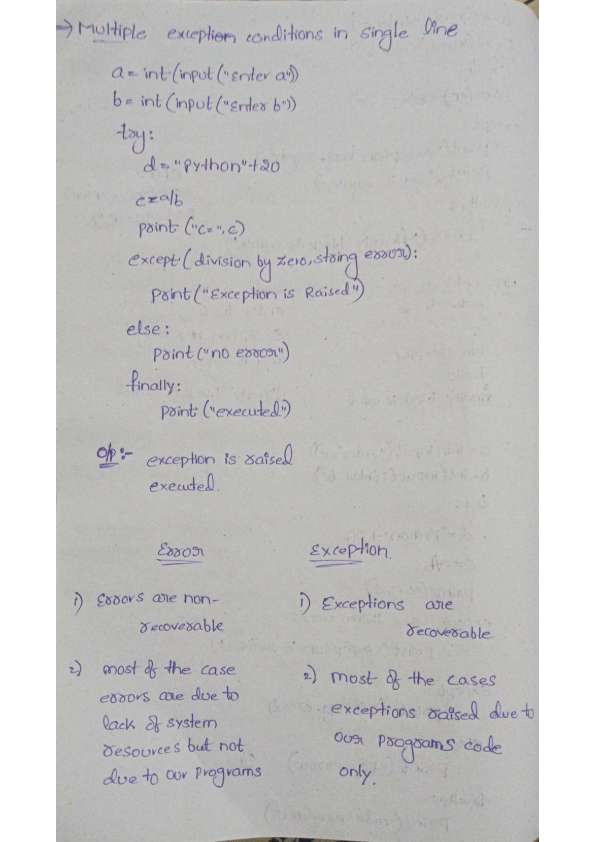 → Multiple exception conditions in single line
a = int(input("enter a"))
b = int(input("enter b"))
try:
d = "python"+20
c=a/b
print ("c=", c)
except (division by zero, string error):
print ("Exception is Raised")
else:
print ("no error")
finally:
print ("executed")
O/p :- exception is raised
executed.
Error
Exception
1) Errors are non-
recoverable
2) most of the case
errors are due to
lack of system
resources but not
due to our programs
1) Exceptions are
recoverable
2) most of the cases
exceptions raised due to
our programs code
only.